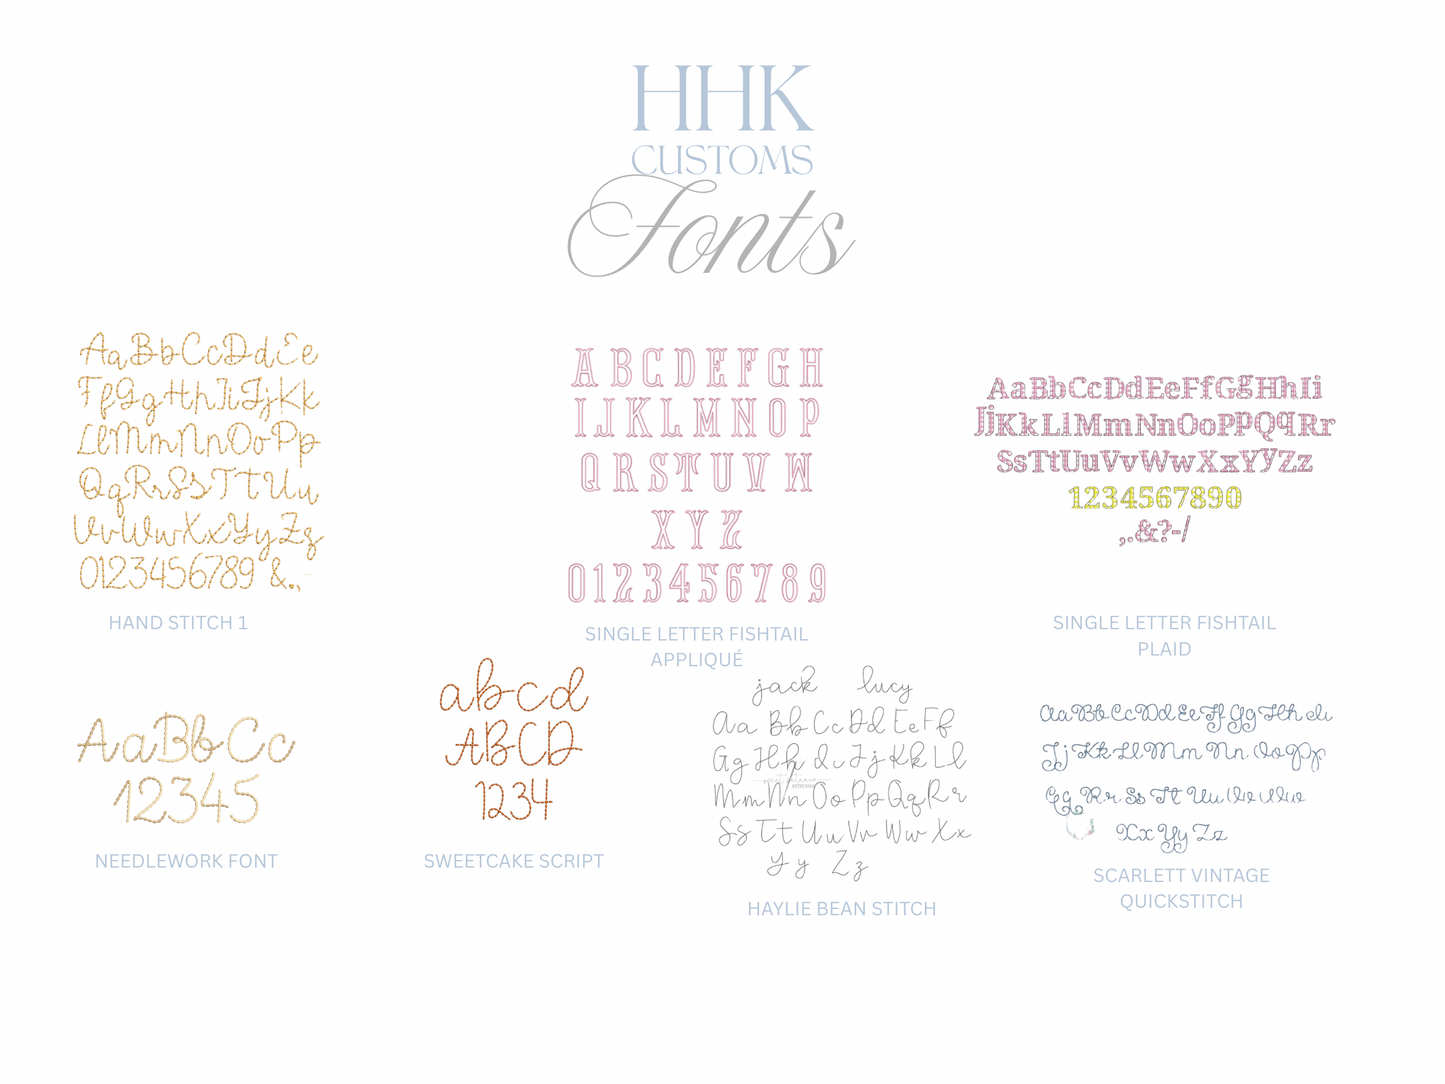 HHK
CUSTOMS
Fonts
AaBbCcDdEe
FfGgHhIiJjKk
LlMmNnOoPp
QqRrSsTtUu
VvWwXxYyZz
0123456789 &.,
HAND STITCH 1
ABCDEFGH
IJKLMNOP
QRSTUVW
XYZ
0123456789
SINGLE LETTER FISHTAIL
APPLIQUÉ
AaBbCcDdEeFfGgHhIi
JjKkLlMmNnOoPpQqRr
SsTtUuVvWwXxYyZz
1234567890
,.&?-/
SINGLE LETTER FISHTAIL
PLAID
AaBbCc
12345
NEEDLEWORK FONT
abcd
ABCD
1234
SWEETCAKE SCRIPT
jack lucy
Aa Bb Cc Dd Ee Ff
Gg Hh Ii Jj Kk Ll
Mm Nn Oo Pp Qq Rr
Ss Tt Uu Vv Ww Xx
Yy Zz
HAYLIE BEAN STITCH
Aa Bb Cc Dd Ee Ff Gg Hh Ii
Jj Kk Ll Mm Nn Oo Pp
Qq Rr Ss Tt Uu Vv Ww
Xx Yy Zz
SCARLETT VINTAGE
QUICKSTITCH